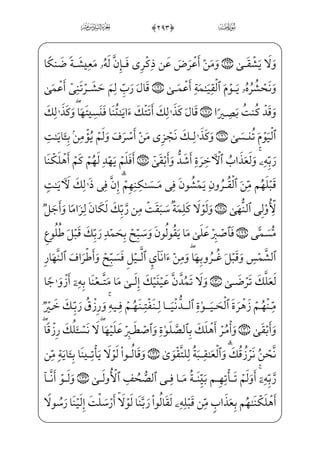 الجزء السادس عشر ﴿٢٩٣﴾ سورة طه
وَلَا يَشْقَىٰ ١٢٣ وَمَنْ أَعْرَضَ عَن ذِكْرِي فَإِنَّ لَهُۥ مَعِيشَةً ضَنكًا
وَنَحْشُرُهُۥ يَوْمَ ٱلْقِيَـٰمَةِ أَعْمَىٰ ١٢٤ قَالَ رَبِّ لِمَ حَشَرْتَنِيٓ أَعْمَىٰ
وَقَدْ كُنتُ بَصِيرًا ١٢٥ قَالَ كَذَٰلِكَ أَتَتْكَ ءَايَـٰتُنَا فَنَسِيتَهَا ۖ وَكَذَٰلِكَ
ٱلْيَوْمَ تُنسَىٰ ١٢٦ وَكَذَٰلِكَ نَجْزِي مَنْ أَسْرَفَ وَلَمْ يُؤْمِنۢ بِـَٔايَـٰتِ
رَبِّهِۦ ۚ وَلَعَذَابُ ٱلْـَٔاخِرَةِ أَشَدُّ وَأَبْقَىٰٓ ١٢٧ أَفَلَمْ يَهْدِ لَهُمْ كَمْ أَهْلَكْنَا
قَبْلَهُم مِّنَ ٱلْقُرُونِ يَمْشُونَ فِي مَسَـٰكِنِهِمْ ۗ إِنَّ فِي ذَٰلِكَ لَـَٔايَـٰتٍ
لِّأُو۟لِي ٱلنُّهَىٰ ١٢٨ وَلَوْلَا كَلِمَةٌ سَبَقَتْ مِن رَّبِّكَ لَكَانَ لِزَامًا وَأَجَلٌ
مُّسَمًّى ١٢٩ فَٱصْبِرْ عَلَىٰ مَا يَقُولُونَ وَسَبِّحْ بِحَمْدِ رَبِّكَ قَبْلَ طُلُوعِ
ٱلشَّمْسِ وَقَبْلَ غُرُوبِهَا ۖ وَمِنْ ءَانَآئِ ٱلَّيْلِ فَسَبِّحْ وَأَطْرَافَ ٱلنَّهَارِ
لَعَلَّكَ تَرْضَىٰ ١٣٠ وَلَا تَمُدَّنَّ عَيْنَيْكَ إِلَىٰ مَا مَتَّعْنَا بِهِۦٓ أَزْوَٰجًا
مِّنْهُمْ زَهْرَةَ ٱلْحَيَوٰةِ ٱلدُّنْيَا لِنَفْتِنَهُمْ فِيهِ ۚ وَرِزْقُ رَبِّكَ خَيْرٌ
وَأَبْقَىٰ ١٣١ وَأْمُرْ أَهْلَكَ بِٱلصَّلَوٰةِ وَٱصْطَبِرْ عَلَيْهَا ۖ لَا نَسْـَٔلُكَ رِزْقًا ۖ
نَّحْنُ نَرْزُقُكَ ۗ وَٱلْعَـٰقِبَةُ لِلتَّقْوَىٰ ١٣٢ وَقَالُوا۟ لَوْلَا يَأْتِينَا بِـَٔايَةٍ مِّن
رَّبِّهِۦٓ ۚ أَوَلَمْ تَأْتِهِم بَيِّنَةُ مَا فِي ٱلصُّحُفِ ٱلْأُولَىٰ ١٣٣ وَلَوْ أَنَّآ
أَهْلَكْنَـٰهُم بِعَذَابٍ مِّن قَبْلِهِۦ لَقَالُوا۟ رَبَّنَا لَوْلَآ أَرْسَلْتَ إِلَيْنَا رَسُولًا